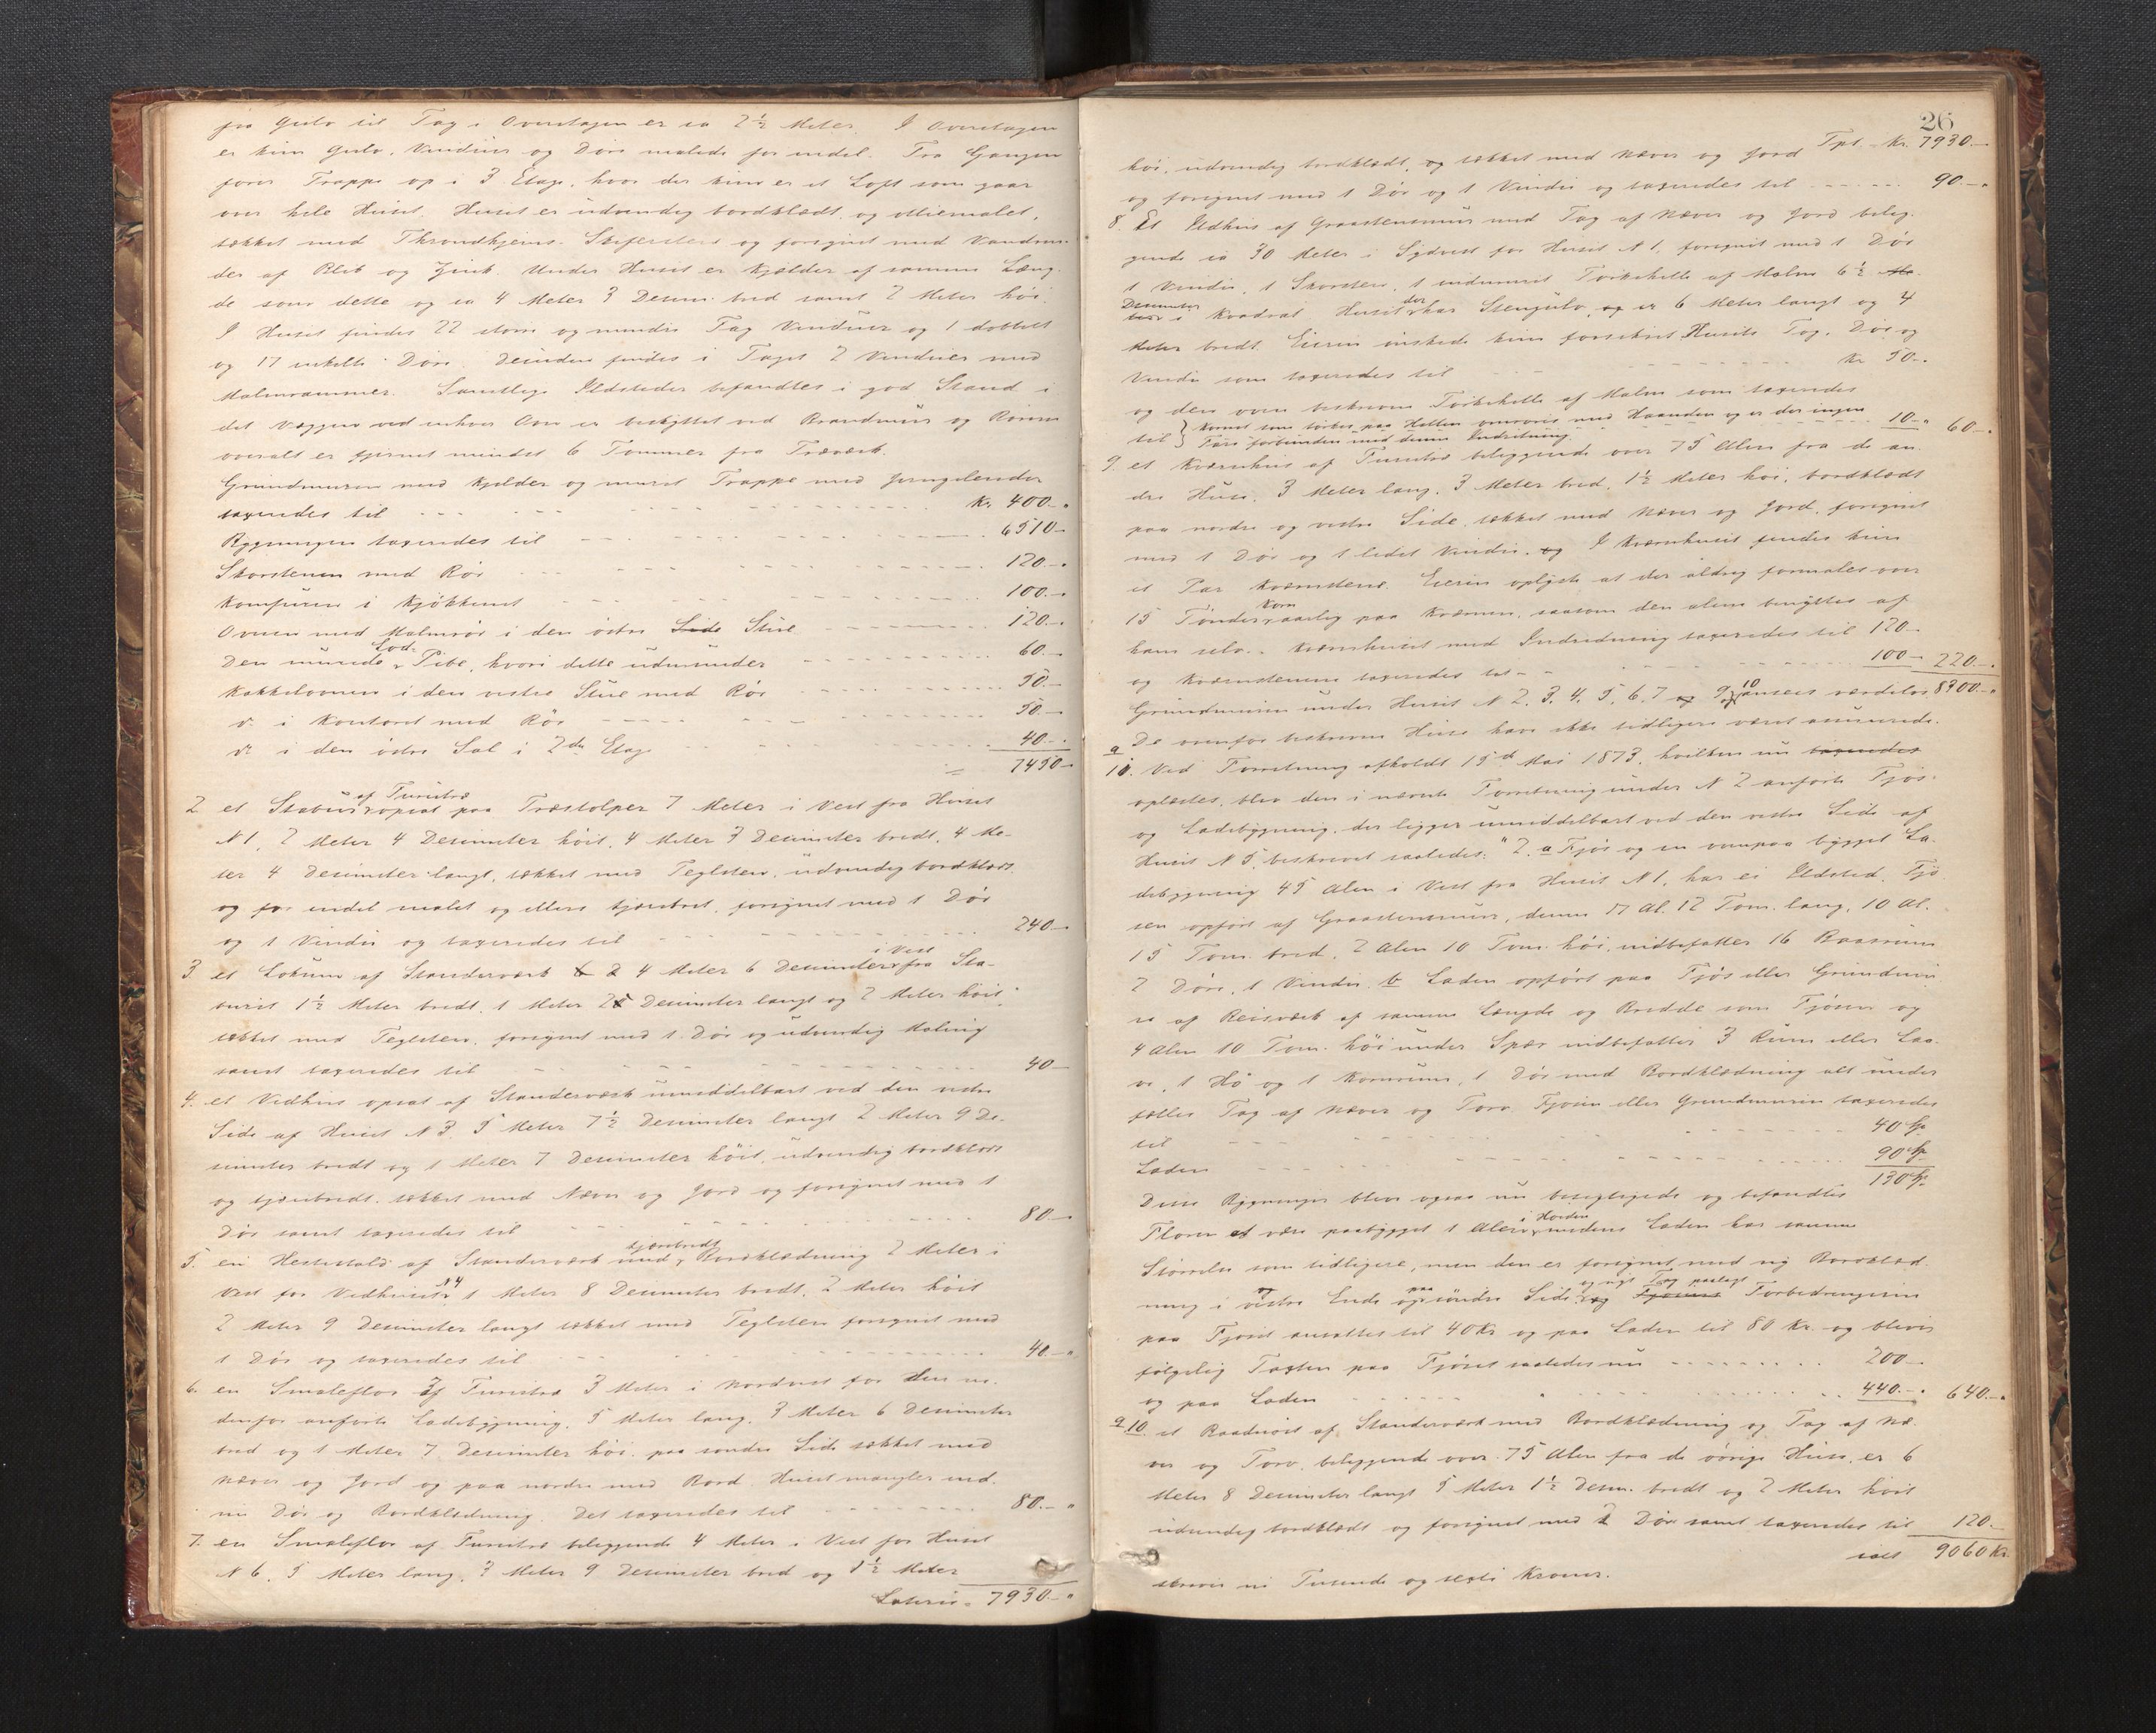 fra Gulv til Tag i Overetagen er ca 2 1/2 Meter. I Overetagen
er kun Gulv, Vinduer og Døre malede for endel. Fra Gangen
fører Trappe op i 3 Etage, hvor der kun er et Loft som gaar
over hele Huset. Huset er udvendig bordklædt og oliemalet,
tækket med Throndhjems-Skifersten og forsynet med Vandren-
der af Blik og Zink. Under Huset er Kjælder af samme Læng-
de som dette og ca 4 Meter 3 Decim. bred samt 2 Meter höi.
I Huset findes 22 störe og mindre Fag Vinduer og 1 dobbelt
og 17 enkelte Döre. Desuden findes i Taget 2 Vinduer med
Malmrammer. Samtlige Ildsteder befandtes i god Stand i
det Væggen ved enhver Ovn er beskyttet ved Brandmur og Rörene
overalt er fjernet mindst 6 Tommer fra Træværk.
Grundmuren med Kjelder og muret Trappe med Jerngelender
taxeredes til Kr. 400.-
Bygningen taxeredes til 6510-
Skorstenen med Rör 120.-
Komfuren i Kjökkenet 100.-
Ovnen med Malmrör i den östre Side Stue 120.-
Den murede Lod-Pibe, hvori dette udmunder 60.-
Kakkelovnen i den vestre Stue med Rör 50.-
do. i Kontoret med Rör 50.-
do. i den östre Sal i 2den Etage 40.-
= 7450-
2 et Stabur af Furutræ opsat paa Træstolper 7 Meter i Vest fra Huset
N 1, 2 Meter 4 Decimeter höit, 4 Meter 3 Decimeter bredt, 4 Me-
ter 4 Decimeter langt, tækket med Teglsten, udvendig bordklædt
og for endel malet og ellers tjærebret, forsynet med 1 Dör
og 1 Vindu og taxeredes til 240-
3. et Lokum af Standerværk 4 Meter 6 Decimeter i Vest fra Sta-
buret 1 1/2 Meter bredt, 1 Meter 2 Decimeter langt og 2 Meter höit,
tækket med Teglsten, forsynet med 1 Dör og udvendig Maling
samt taxeredes til 40-
4. et Vedhus opsat af Standerværk umiddelbart ved den vestre
Side af Huset N 3, 5 Meter 7 1/2 Decimeter langt 2 Meter 9 De-
cimeter bredt og 1 Meter 7 Decimeter höit, udvendig bordklædt
og tjærebredt, tækket med Næver og Jord og forsynet med 1
Dör samt taxeredes til 80-
5. en Hestestald af Standerværk med tjærebredt Bordklædning 2 Meter i
Vest for Vedhuset N 4 1 Meter 8 Decimeter bredt, 2 Meter höit
2 Meter 9 Decimeter langt tækket med Teglsten forsynet med
1 Dör og taxeredes til 40.-
6. en Smaleflor af Furutræ 3 Meter i Nordvest for den ne-
denfor anförte Ladebygning, 5 Meter lang, 3 Meter 6 Decimeter
bred og 1 Meter 7 Decimeter höi, paa söndre Side tækket med
Næver og Jord og paa nordre med Bord. Huset mangler end-
nu Dör og Bordklædning. Det taxeredes til 80.-
7. en Smaleflor af Furutræ beliggende 4 Meter i Vest for Huset
N 6, 5 Meter lang, 3 Meter 9 Decimeter bred og 1 1/2 Meter
Lateris 7930.-
26
Tpt. Kr. 7930.-
höi, udvendig bordklædt, og tækket med Næver og Jord
og forsynet med 1 Dör og 1 Vindu og taxeredes til 90.-
8. Et Ildhus af Graastensmur med Tag af Næver og Jord belig-
gende ca 30 Meter i Sydvest for Huset N 1, forsynet med 1 Dör
1 Vindu, 1 Skorsten, 1 indmuret Törkehelle af Malm 6 1/2
Decimeter i Kvadrat. Huset, der har Stengulv, er 6 Meter langt og 4
Meter bredt. Eieren önskede kun forsikret Husets Tag, Dör og
Vindu som taxeredes til Kr 50.-
og den oven beskrevne Törkehelle af Malm som taxeredes
til { Kornet som törkes paa Hellen omröres med Haanden og er der ingen 10.- 60.-
Fare forbunden med denne Indretning
9. et Kværnhus af Furutræ beliggende over 75 Alen fra de an-
dre Huse, 3 Meter lang, 3 Meter bred, 1 1/2 Meter höi, bordklædt
paa nordre og vestre Side, tækket med Næver og Jord, forsynet
med 1 Dör og 1 lidet Vindu. og I Kværnhuset findes kun
et Par Kværnstene. Eieren oplyste at der aldrig formales over
15 Tönder Korn aarlig paa Kværnen, saasom den alene benyttes af
ham selv. Kværnhuset med Indredning taxeredes til 120-
og Kværnstenene taxeredes til 100- 220.-
Grundmuren under Huset N 2, 3, 4, 5, 6, 7 og 9 og 10 ansees værdilös 8300.-
De ovenfor beskrevne Huse have ikke tidligere været assurerede.
a
10. Ved Forretning afholdt 15d Mai 1873, hvilken nu taxeredes
oplæstes, blev den i nævnte Forretning under N 2 anförte Fjös-
og Ladebygning, der ligger umiddelbart ved den vestre Side af
Huset N 5 beskrevet saaledes: "2. a Fjös og en ovenpaa bygget La-
debygning 45 Alen i Vest fra Huset N 1, har ei Ildsted. Fjö-
sen opfört af Graastensmur, denne 17 Al. 12 Tom. lang, 10 Al.
15 Tom. bred, 2 Alen 10 Tom. höi, indbefatter 16 Baasrum
2 Döre, 1 Vindu. b Laden opfört paa Fjös eller Grundmu-
re af Reisværk af samme Længde og Bredde som Fjösen og
4 Alen 10 Tom. höi under Spær indbefatter 3 Rum eller Laa-
ve, 1 Hö og 1 Kornrum, 1 Dör med Bordklædning alt under
fælles Tag af Næver og Torv. Fjösen eller Grundmuren taxeredes
til 40 Sp
Laden 90 Sp
130 Sp
Disse Bygninger blev ogsaa nu besigtigede og befandtes
Floren at være paabygget 1 Alen i Höiden, medens Laden har samme
Störrelse som tidligere, men den er forsynet med ny Bordklæd-
ning i vestre Ende og paa söndre Side og nyt Tag paalagt Forbedringerne
paa Fjöset ansattes til 40 Kr og paa Laden til 80 Kr. og bliver
fölgelig Taxten paa Fjöset saaledes nu 200-
og paa Laden 440.- 640.-
a 10. et Baadnöst af Standerværk med Bordklædning og Tag af Næ-
ver og Torv, beliggende over 75 Alen fra de övrige Huse, er 6
Meter 8 Decimeter langt 5 Meter 1 1/2 Decim. bredt og 2 Meter höit
udvendig bordklædt og forsynet med 2 Döre samt taxeredes til 120.-
ialt 9060 Kr.
skriver ni Tusende og sexti Kroner.